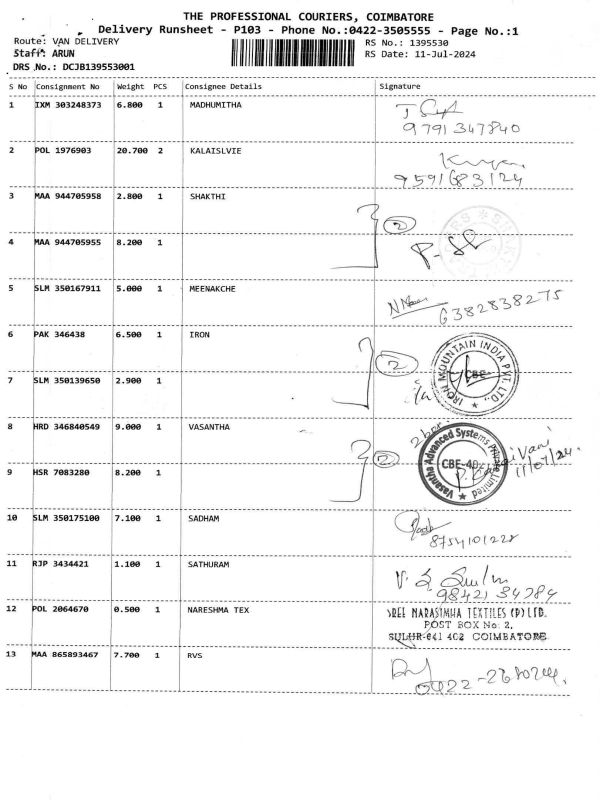 THE PROFESSIONAL COURIERS, COIMBATORE
Delivery Runsheet - P103 - Phone No.:0422-3505555 - Page No.:1
Route: VAN DELIVERY RS No.: 1395530
Staff: ARUN RS Date: 11-Jul-2024
DRS No.: DCJB139553001
S No Consignment No Weight PCS Consignee Details Signature
1 IXM 303248373 6.800 1 MADHUMITHA
9791347840
2 POL 1976903 20.700 2 KALAISLVIE
9591683124
3 MAA 944705958 2.800 1 SHAKTHI
2
4 MAA 944705955 8.200 1
5 SLM 350167911 5.000 1 MEENAKCHE
6382838275
6 PAK 346438 6.500 1 IRON
2 IRON MOUNTAIN INDIA PVT. LTD.,
CBE
7 SLM 350139650 2.900 1
8 HRD 346840549 9.000 1 VASANTHA
2 Vasantha Advanced Systems Private Limited
CBE-402
11/07/24.
9 HSR 7083280 8.200 1
10 SLM 350175100 7.100 1 SADHAM
8754101228
11 RJP 3434421 1.100 1 SATHURAM
9842134784
12 POL 2064670 0.500 1 NARESHMA TEX SREE NARASIMHA TEXTILES (P) LTD.
POST BOX No: 2,
SULUR-641 402 COIMBATORE
13 MAA 865893467 7.700 1 RVS